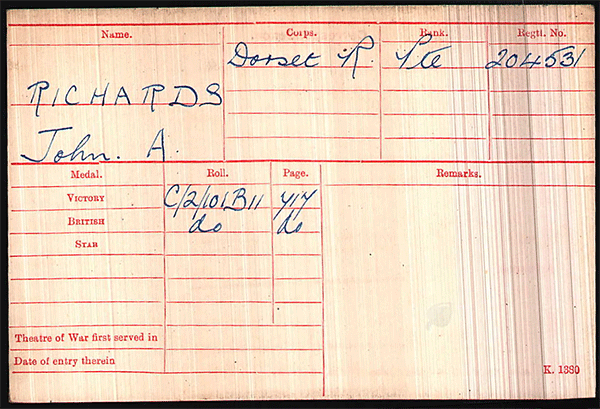 Name. Corps. Rank. Regtl. No.
Dorset R. Pte 204531
RICHARDS
John. A.
Medal. Roll. Page. Remarks.
VICTORY C/2/101B11
BRITISH do do
STAR
Theatre of War first served in
Date of entry therein
K. 1380